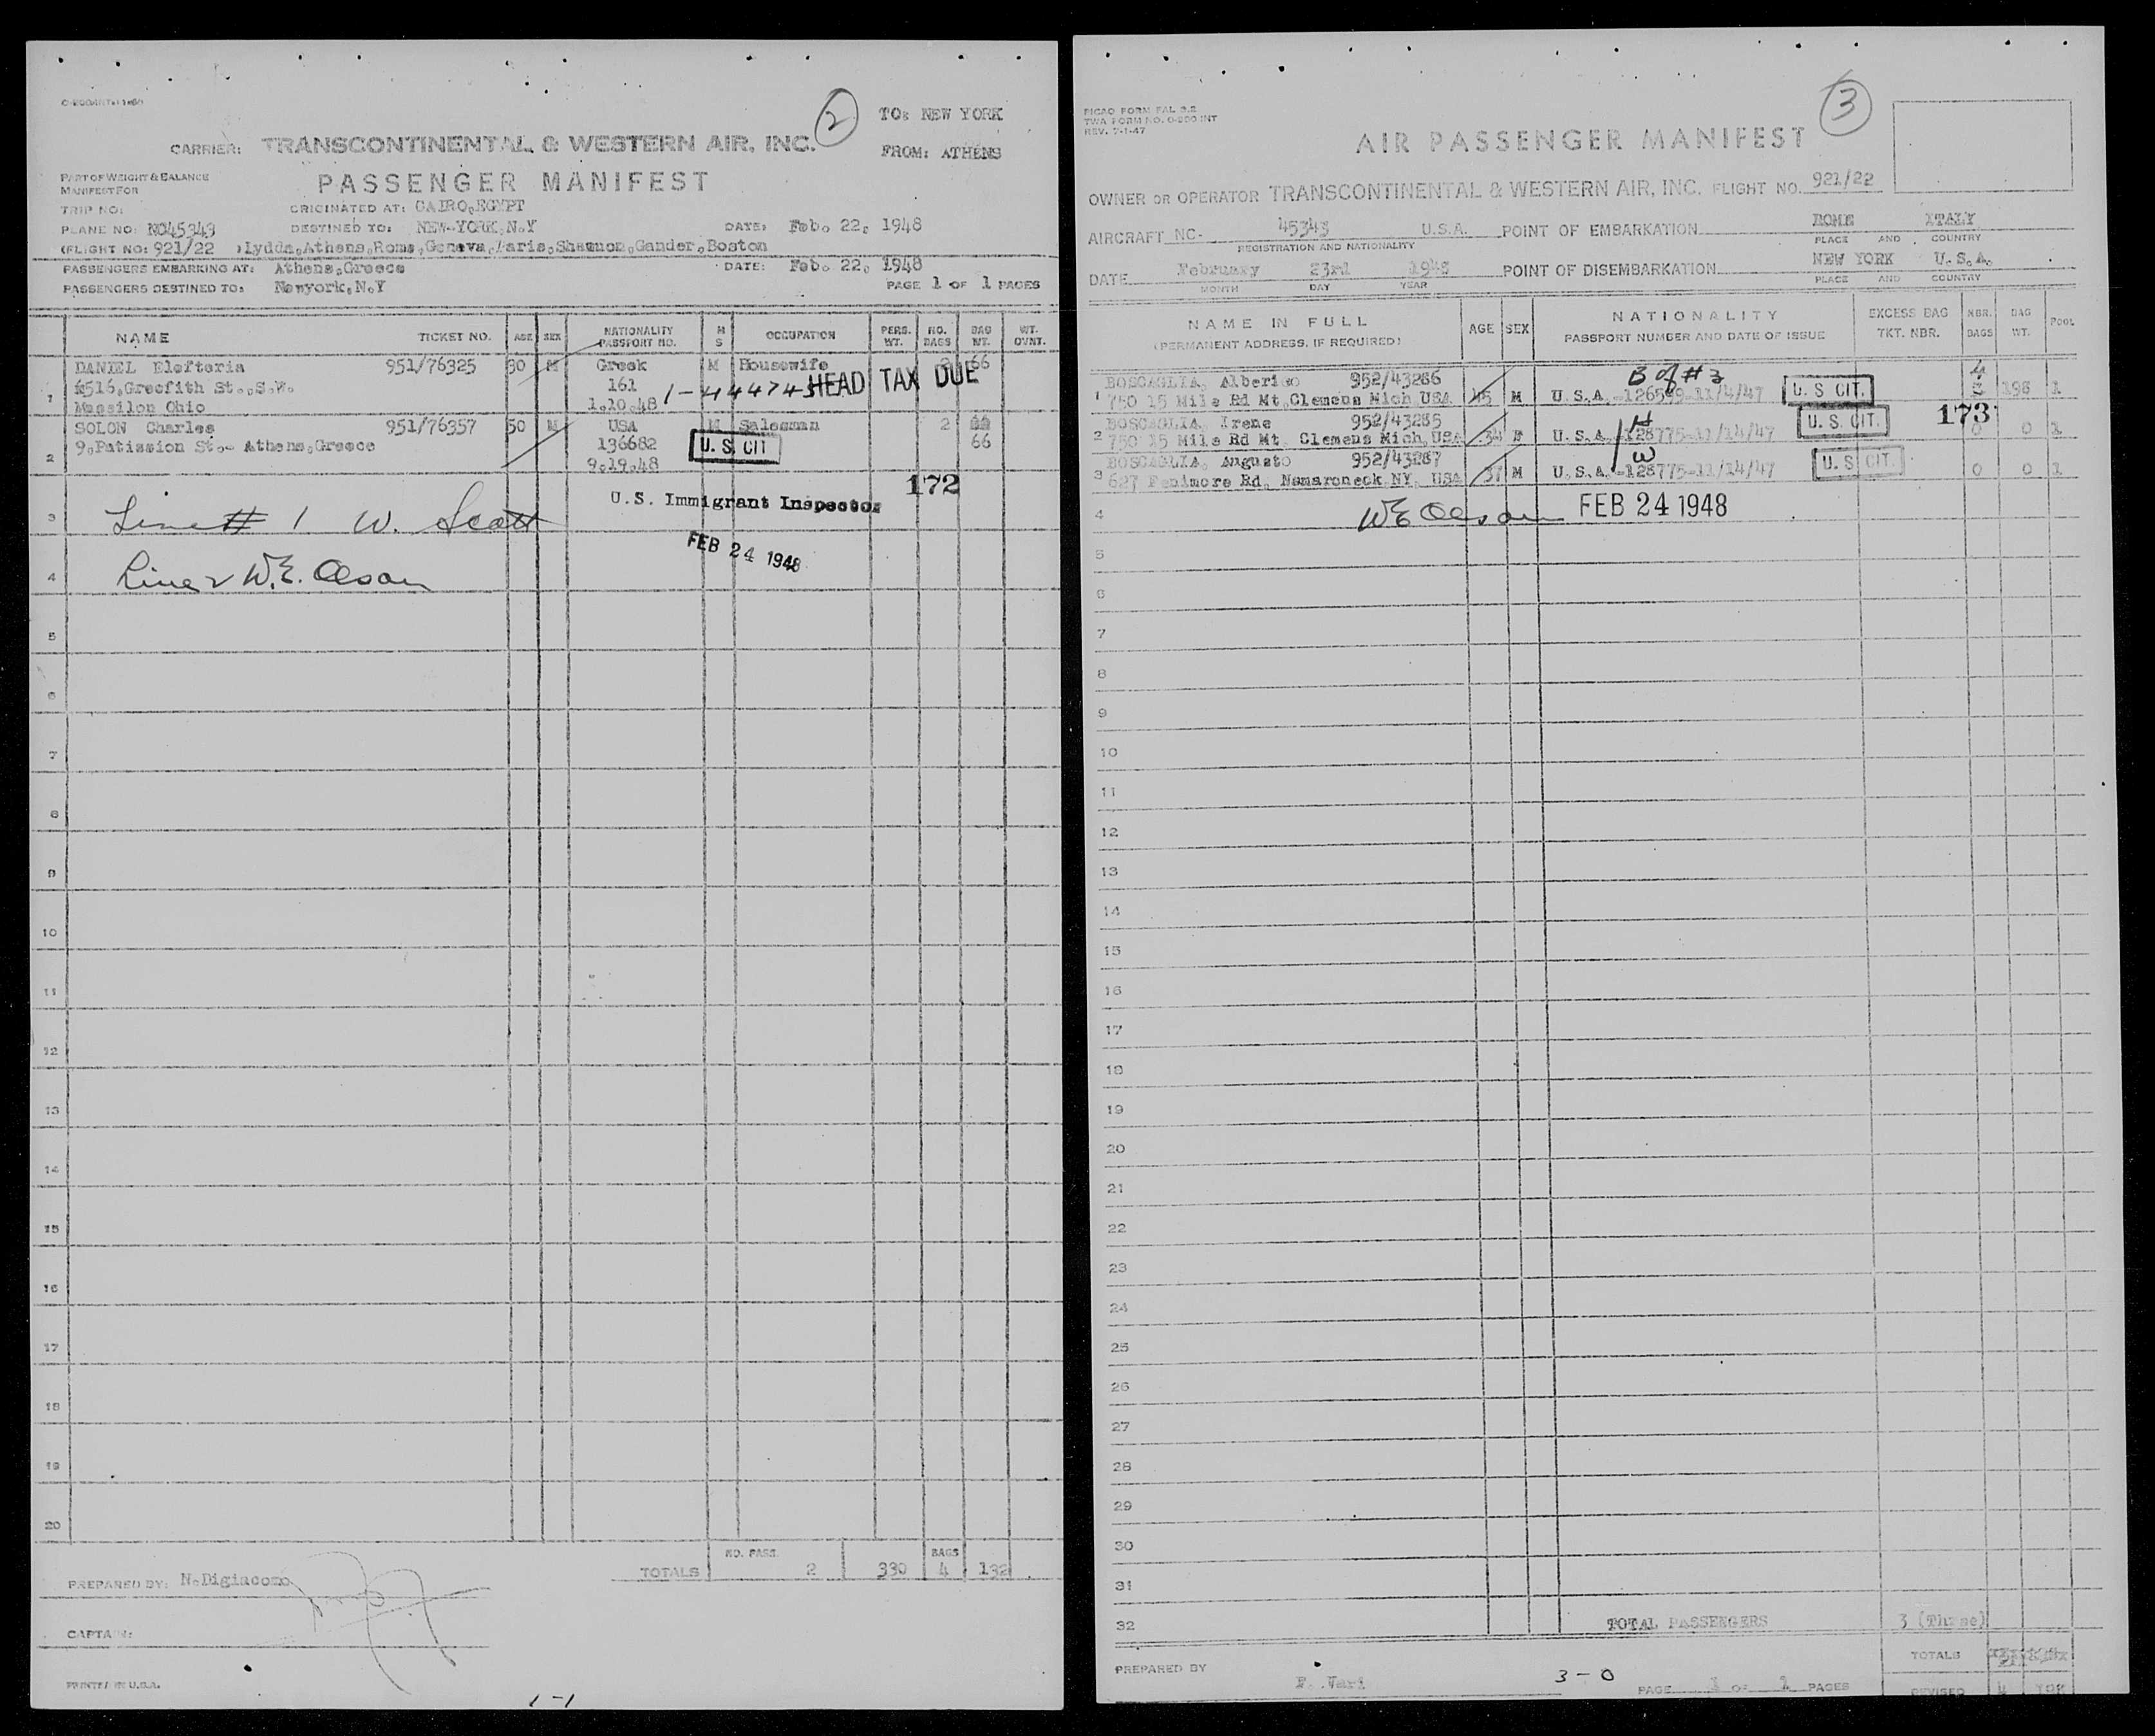 2
TO: NEW YORK
CARRIER: TRANSCONTINENTAL & WESTERN AIR, INC.
FROM: ATHENS
PART OF WEIGHT & BALANCE
MANIFEST FOR
PASSENGER MANIFEST
TRIP NO:
ORIGINATED AT: CAIRO,EGYPT
PLANE NO: NC45343 DESTINED TO: NEW-YORK,N.Y DATE: Feb. 22, 1948
(FLIGHT NO: 921/22 ,Lydda,Athens,Rome,Geneva,Paris,Shannon,Gander,Boston
PASSENGERS EMBARKING AT: Athens,Greece DATE: Feb. 22, 1948
PASSENGERS DESTINED TO: Newyork,N.Y PAGE 1 OF 1 PAGES
NAME TICKET NO. AGE SEX NATIONALITY PASSPORT NO. M S OCCUPATION PERS. WT. NO. BAGS BAG WT. WT. OVNT.
DANIEL Elefteria 951/76325 30 M Greek M Housewife 2 66
1516,Greefith St.,S.W. 161 1-444743 HEAD TAX DUE
1 Massilon Ohio 1.10.48
SOLON Charles 951/76357 50 M USA M Salesman 2
9,Patission St.- Athens,Greece 136682 U. S. CIT 66
2 9.19.48
172
U.S. Immigrant Inspector
3 Line # 1 W. Scott
FEB 24 1948
4 Line 2 W.E. Olson
5
6
7
8
9
10
11
12
13
14
15
16
17
18
19
20
NO. PASS. BAGS
TOTALS 2 330 4 132
PREPARED BY: N.Digiacomo
CAPTAIN:
PRINTED IN U.S.A.
1-1
3
PICAO FORM FAL 3.2
TWA FORM NO. O-200 INT
REV. 7-1-47
AIR PASSENGER MANIFEST
OWNER OR OPERATOR TRANSCONTINENTAL & WESTERN AIR, INC. FLIGHT NO. 921/22
AIRCRAFT NC- 45343 U.S.A. POINT OF EMBARKATION ROME ITALY
REGISTRATION AND NATIONALITY PLACE AND COUNTRY
DATE February 23rd 1948 POINT OF DISEMBARKATION NEW YORK U.S.A.
MONTH DAY YEAR PLACE AND COUNTRY
NAME IN FULL AGE SEX NATIONALITY EXCESS BAG NBR. BAG POOL
(PERMANENT ADDRESS, IF REQUIRED) PASSPORT NUMBER AND DATE OF ISSUE TKT. NBR. BAGS WT.
BOSCAGLIA, Alberico 952/43286 B of #3 4
1 750 15 Mile Rd Mt,Clemens Mich USA 45 M U.S.A.-126599-11/4/47 U. S. CIT. 198 1
BOSCAGLIA, Irene 952/43285 H U. S. CIT. 173
2 750 15 Mile Rd Mt, Clemens Mich,USA 34 F U.S.A.-128775-11/14/47 0 0 1
BOSCAGLIA, Augusto 952/43287 W
3 627 Fenimore Rd, Namaroneck NY, USA 37 M U.S.A.-128775-11/14/47 U. S. CIT. 0 0 1
4 WE Olson FEB 24 1948
5
6
7
8
9
10
11
12
13
14
15
16
17
18
19
20
21
22
23
24
25
26
27
28
29
30
31
32 TOTAL PASSENGERS 3 (Three)
TOTALS
PREPARED BY F. Vari 3-0 PAGE 1 OF 1 PAGES
REVISED 4 198